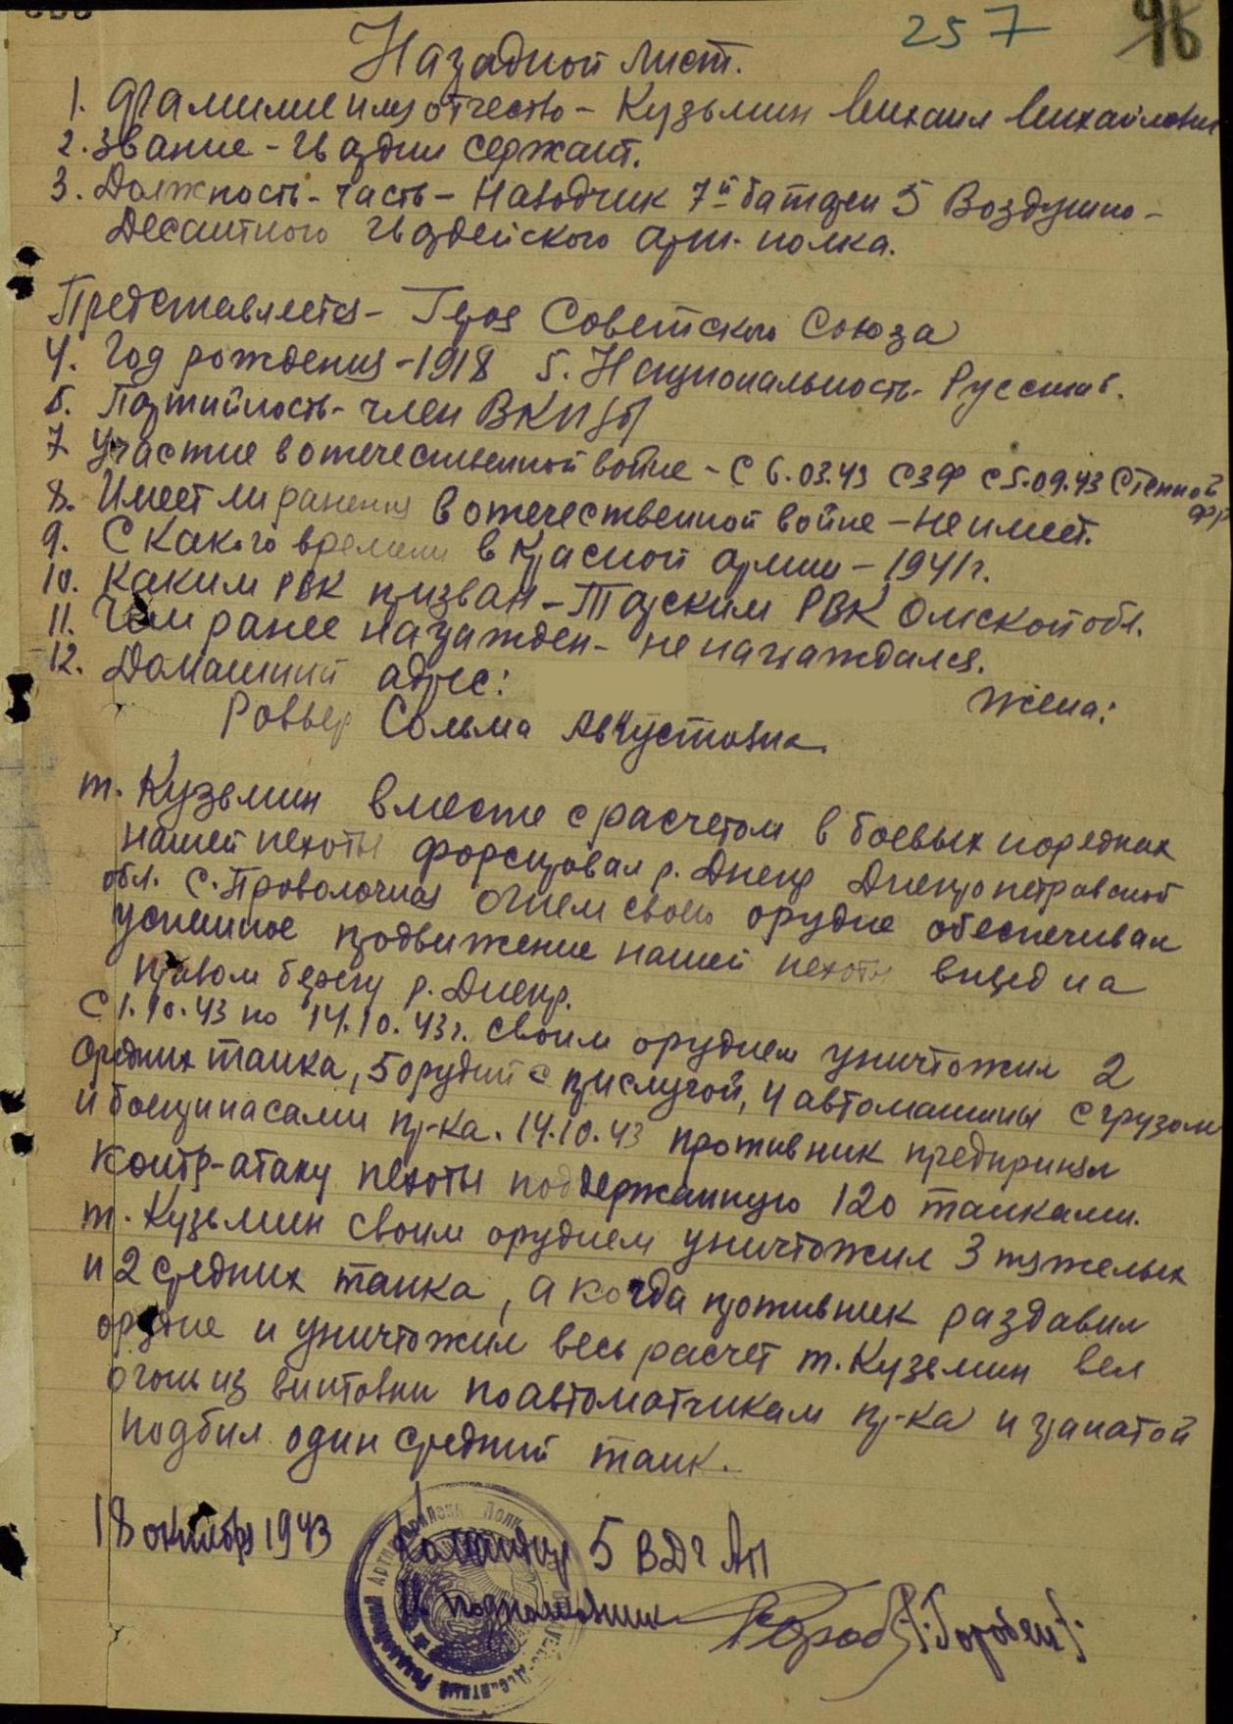 257 96
Наградной лист.
1. Фамилие имя отчество – Кузьмин Михаил Михайлович
2. Звание – Гвардии сержант.
3. Должность - часть – Наводчик 7й батареи 5 Воздушно-
Десантного Гвардейского арт. полка.
Представляется – Героя Советского Союза
4. Год рождения – 1918 5. Национальность - Русский.
6. Партийность - член ВКП/б/
7. Участие в отечественной войне – с 6.03.43 СЗФ с 5.09.43 Степной
фр
8. Имеет ли ранения в отечественной войне – не имеет.
9. С какого времени в Красной армии – 1941г.
10. Каким РВК призван – Тарским РВК Омской обл.
11. Чем ранее награжден – не награждался.
12. Домашний адрес: жена:
Сольма Августовна.
т. Кузьмин вместе с расчетом в боевых порядках
нашей пехоты форсировал р. Днепр Днепропетровской
обл. с. Проволочная огнем своего орудие обеспечивал
успешное продвижение нашей пехоты вперед на
правом берегу р. Днепр.
С 1.10.43 по 14.10.43г. своим орудием уничтожил 2
средних танка, 5 орудий с прислугой, 4 автомашины с грузом
и боеприпасами пр-ка. 14.10.43 противник предпринял
контр-атаку пехоты поддержанную 120 танками.
т. Кузьмин своим орудием уничтожил 3 тяжелых
и 2 средних танка, а когда противник раздавил
орудие и уничтожил весь расчет т. Кузьмин вел
огонь из винтовки по автоматчикам пр-ка и гранатой
подбил один средний танк.
18 октября 1943 Командир 5 ВДГ АП
Гв подполковник /Горобец/